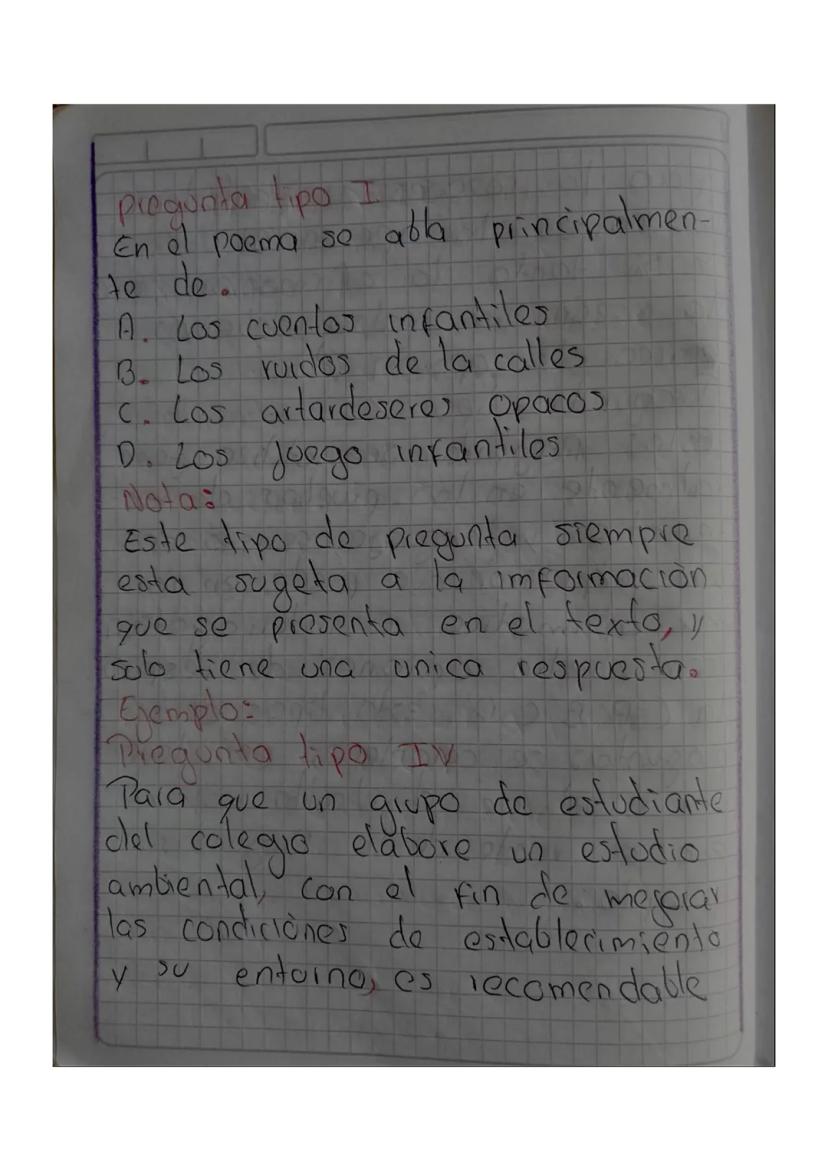 Pregunta tipo I
En el poema se abla principalmen-
te de.
A. Los cuentos infantiles
B. Los ruidos de la calles
C. Los artardeseres opacos
D. Los juego infantiles
Nota:
Este tipo de pregunta siempre
esta sugeta a la imformaciòn
que se presenta en el texto, y
solo tiene una unica respuesta.
Ejemplo:
Pregunta tipo IV
Para que un grupo de estudiante
del colegio elabore un estudio
ambiental, con el fin de mejorar
las condiciònes de establecimiento
y su entorno, es recomendable